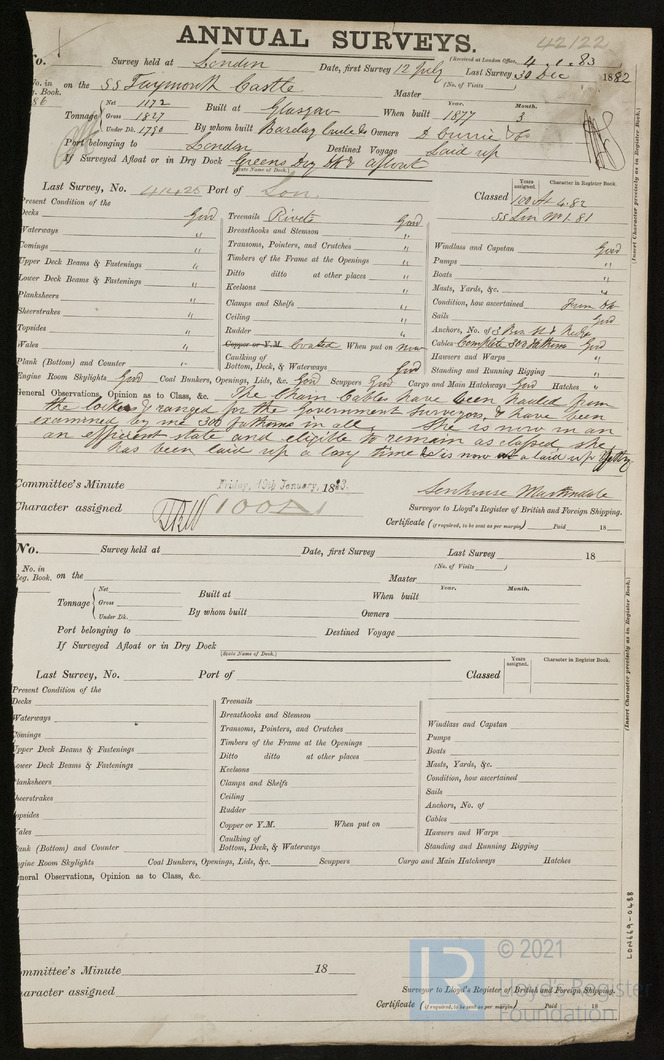 ANNUAL SURVEYS.
42122
(Received at London Office, 4.1.83
No. Survey held at London Date, first Survey 12 July Last Survey 30 Dec 1882
(No. of Visits )
No. in Reg. Book. 86 on the SS Taymouth Castle Master
Tonnage Net 1172 Gross 1827 Under Dk. 1790 Built at Glasgow When built Year. 1877 Month. 3
By whom built Barclay Curle & Co Owners D Currie & Co
Port belonging to London Destined Voyage Laid up
If Surveyed Afloat or in Dry Dock Greens Dry Dk & afloat
(State Name of Dock.)
Last Survey, No. 41425 Port of Lon. Classed Years assigned. Character in Register Book.
100 A1 6.82
SS Lon No 1.81
(Insert Character precisely as in Register Book.)
Present Condition of the
Decks Good
Waterways "
Comings "
Upper Deck Beams & Fastenings "
Lower Deck Beams & Fastenings "
Planksheers "
Sheerstrakes "
Topsides "
Wales "
Plank (Bottom) and Counter "
Treenails Rivets Good
Breasthooks and Stemson "
Transoms, Pointers, and Crutches "
Timbers of the Frame at the Openings "
Ditto ditto at other places "
Keelsons "
Clamps and Shelfs "
Ceiling "
Rudder "
Copper or Y.M. Coated When put on now
Caulking of
Bottom, Deck, & Waterways Good
Windlass and Capstan Good
Pumps "
Boats "
Masts, Yards, &c. "
Condition, how ascertained From Dk
Sails Good
Anchors, No. of 3 Brs. St &
Cables Complete 300 fathoms Good
Hawsers and Warps "
Standing and Running Rigging "
Engine Room Skylights Good Coal Bunkers, Openings, Lids, &c. Good Scuppers Good Cargo and Main Hatchways Good Hatches "
General Observations, Opinion as to Class, &c. The Chain Cables have been hauled from
the lockers & ranged for the Government Surveyors, & have been
examined by me 300 fathoms in all. She is now in an
an efficient state and eligible to remain as classed, she
has been laid up a long time & is now a laid up
Committee's Minute Friday, 19th January, 1883.
Character assigned 100A1
Senhouse Martindale
Surveyor to Lloyd's Register of British and Foreign Shipping.
Certificate (if required, to be sent as per margin) Paid 18
No. Survey held at Date, first Survey Last Survey 18
(No. of Visits )
No. in Reg. Book. on the Master
Tonnage Net Gross Under Dk. Built at When built Year. Month.
By whom built Owners
Port belonging to Destined Voyage
If Surveyed Afloat or in Dry Dock
(State Name of Dock.)
Last Survey, No. Port of Classed Years assigned. Character in Register Book.
(Insert Character precisely as in Register Book.)
Present Condition of the
Decks
Waterways
Comings
Upper Deck Beams & Fastenings
Lower Deck Beams & Fastenings
Planksheers
Sheerstrakes
Topsides
Wales
Plank (Bottom) and Counter
Treenails
Breasthooks and Stemson
Transoms, Pointers, and Crutches
Timbers of the Frame at the Openings
Ditto ditto at other places
Keelsons
Clamps and Shelfs
Ceiling
Rudder
Copper or Y.M. When put on
Caulking of
Bottom, Deck, & Waterways
Windlass and Capstan
Pumps
Boats
Masts, Yards, &c.
Condition, how ascertained
Sails
Anchors, No. of
Cables
Hawsers and Warps
Standing and Running Rigging
Engine Room Skylights Coal Bunkers, Openings, Lids, &c. Scuppers Cargo and Main Hatchways Hatches
General Observations, Opinion as to Class, &c.
Committee's Minute 18
Character assigned
Surveyor to Lloyd's Register of British and Foreign Shipping.
Certificate (if required, to be sent as per margin) Paid 18
LON669-0688
LR © 2021
Lloyd's Register
Foundation